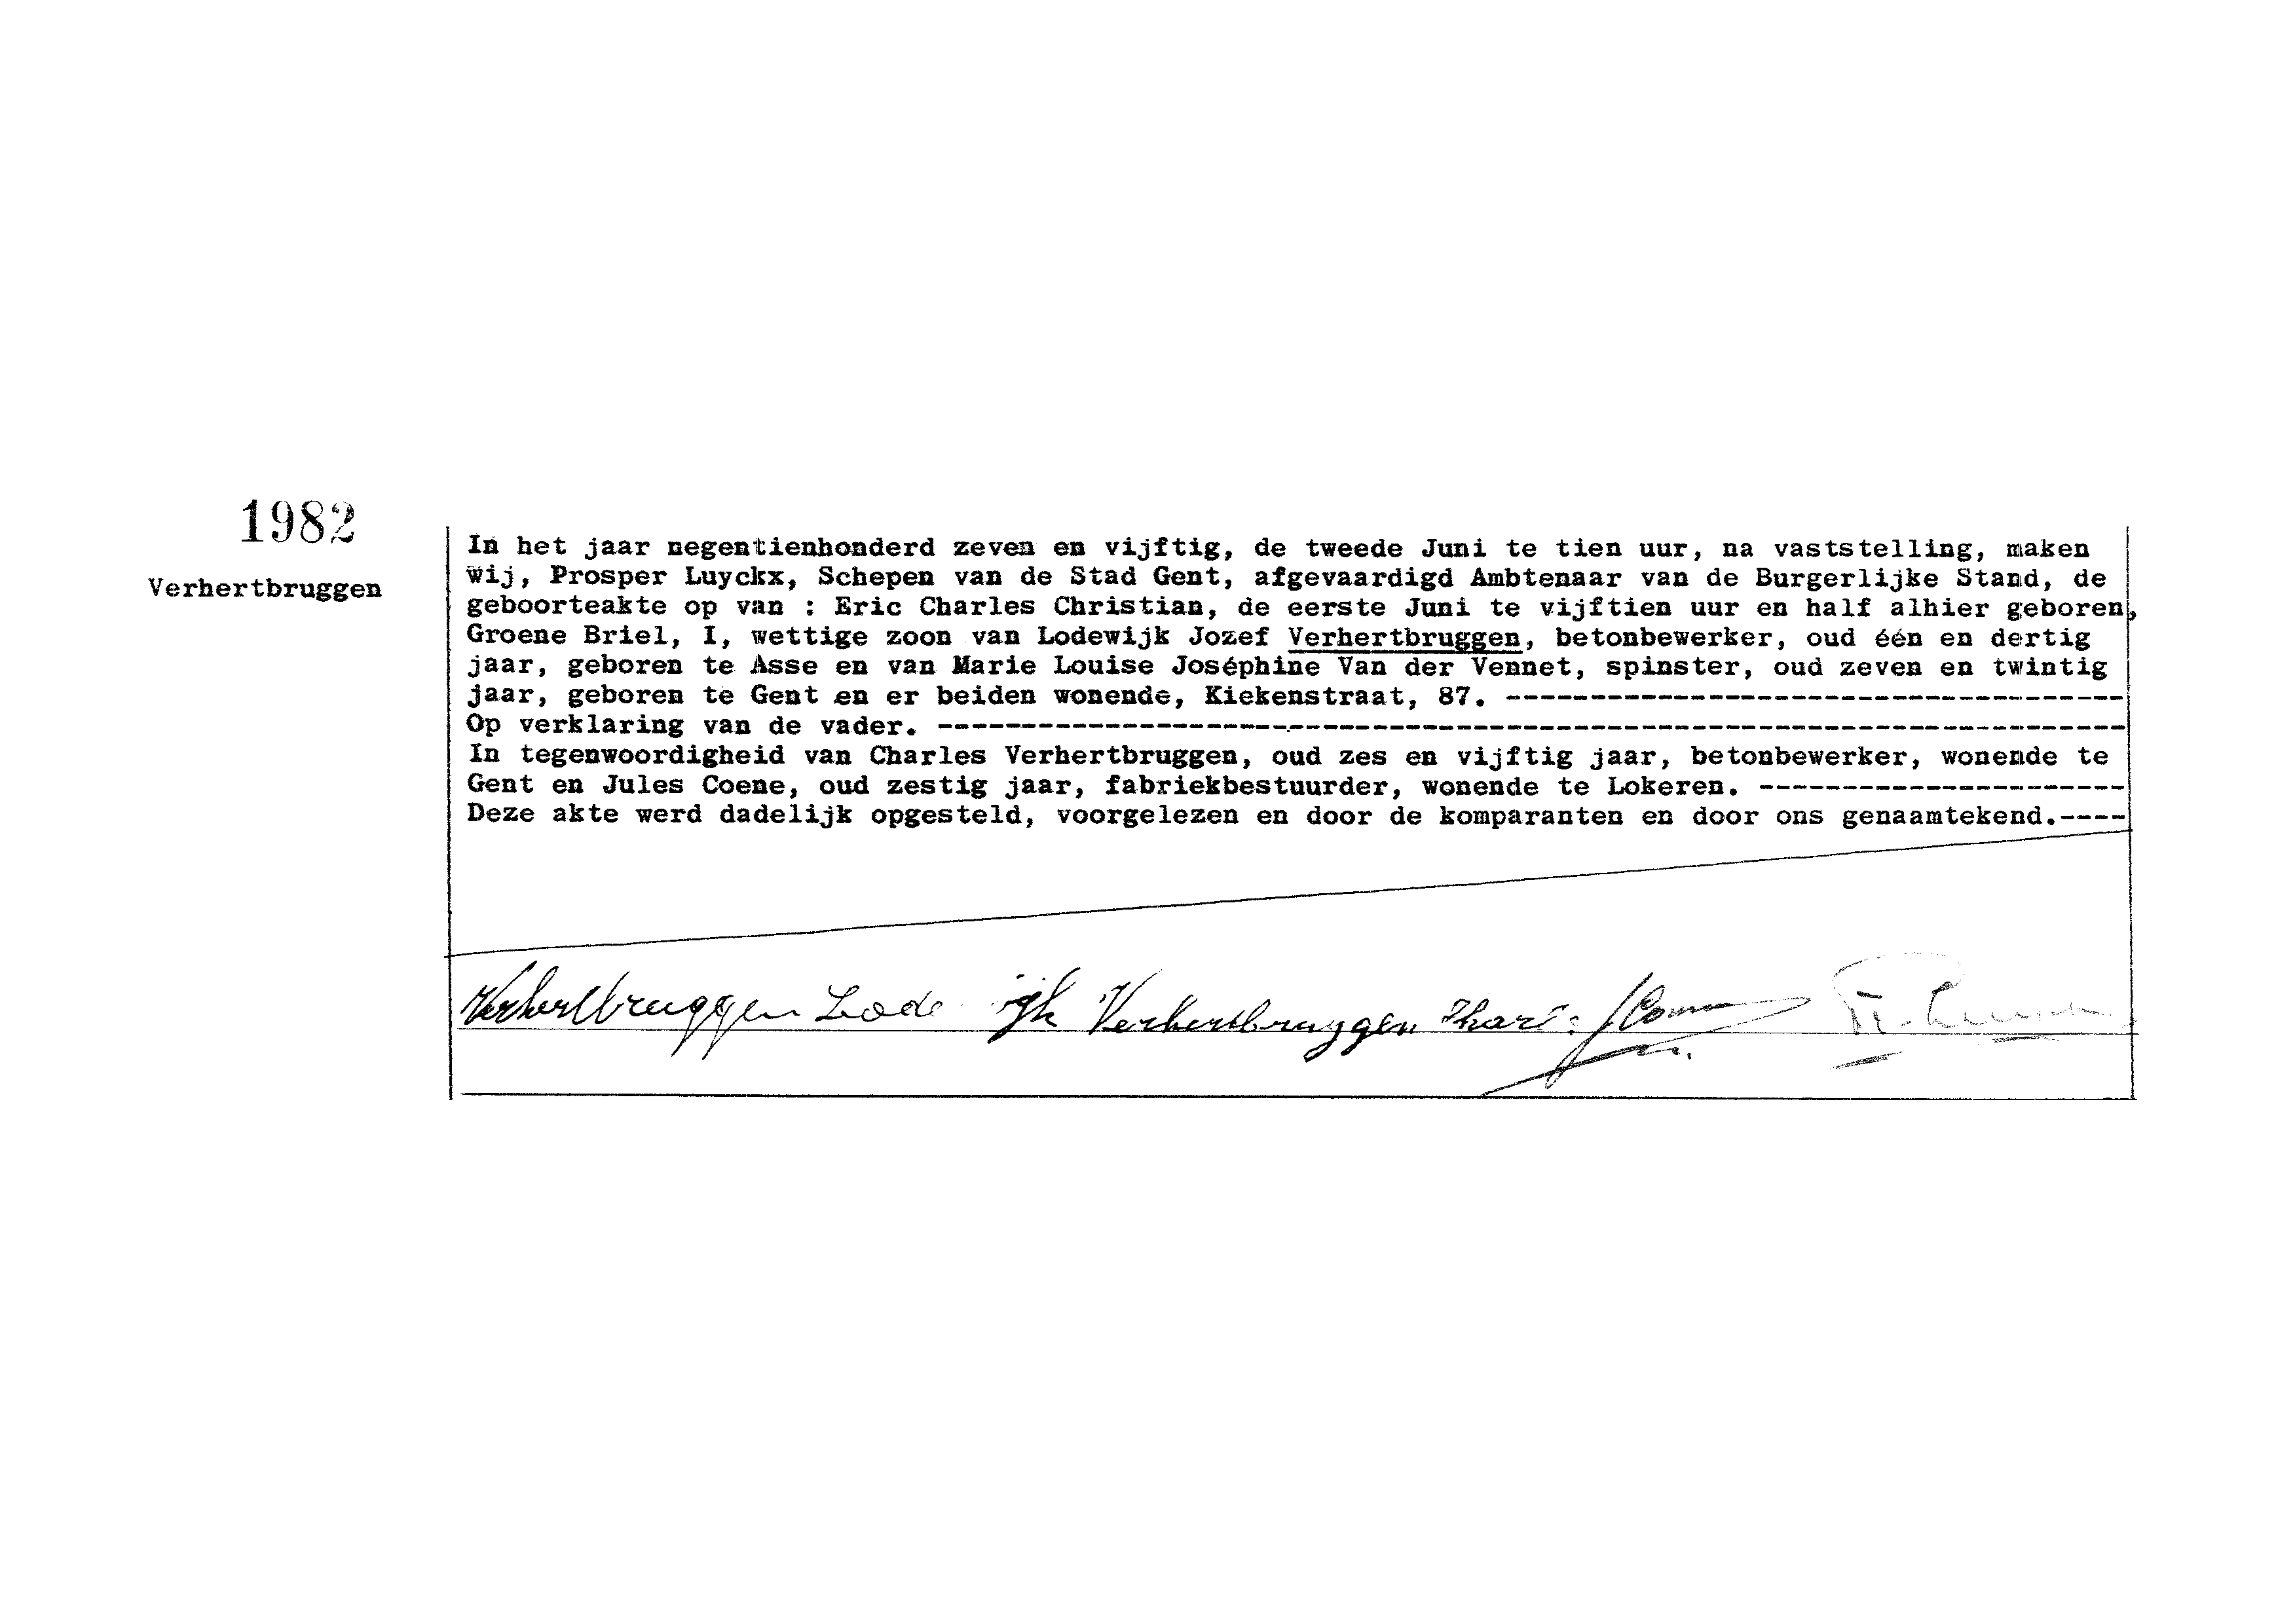 1982
Verhertbruggen
In het jaar negentienhonderd zeven en vijftig, de tweede Juni te tien uur, na vaststelling, maken
wij, Prosper Luyckx, Schepen van de Stad Gent, afgevaardigd Ambtenaar van de Burgerlijke Stand, de
geboorteakte op van : Eric Charles Christian, de eerste Juni te vijftien uur en half alhier geboren,
Groene Briel, I, wettige zoon van Lodewijk Jozef Verhertbruggen, betonbewerker, oud één en dertig
jaar, geboren te Asse en van Marie Louise Joséphine Van der Vennet, spinster, oud zeven en twintig
jaar, geboren te Gent en er beiden wonende, Kiekenstraat, 87. ------------------------------------
Op verklaring van de vader. ----------------------------------------------------------------------
In tegenwoordigheid van Charles Verhertbruggen, oud zes en vijftig jaar, betonbewerker, wonende te
Gent en Jules Coene, oud zestig jaar, fabriekbestuurder, wonende te Lokeren. ---------------------
Deze akte werd dadelijk opgesteld, voorgelezen en door de komparanten en door ons genaamtekend.----
Verhertbruggen Lode ijk Verhertbruggen